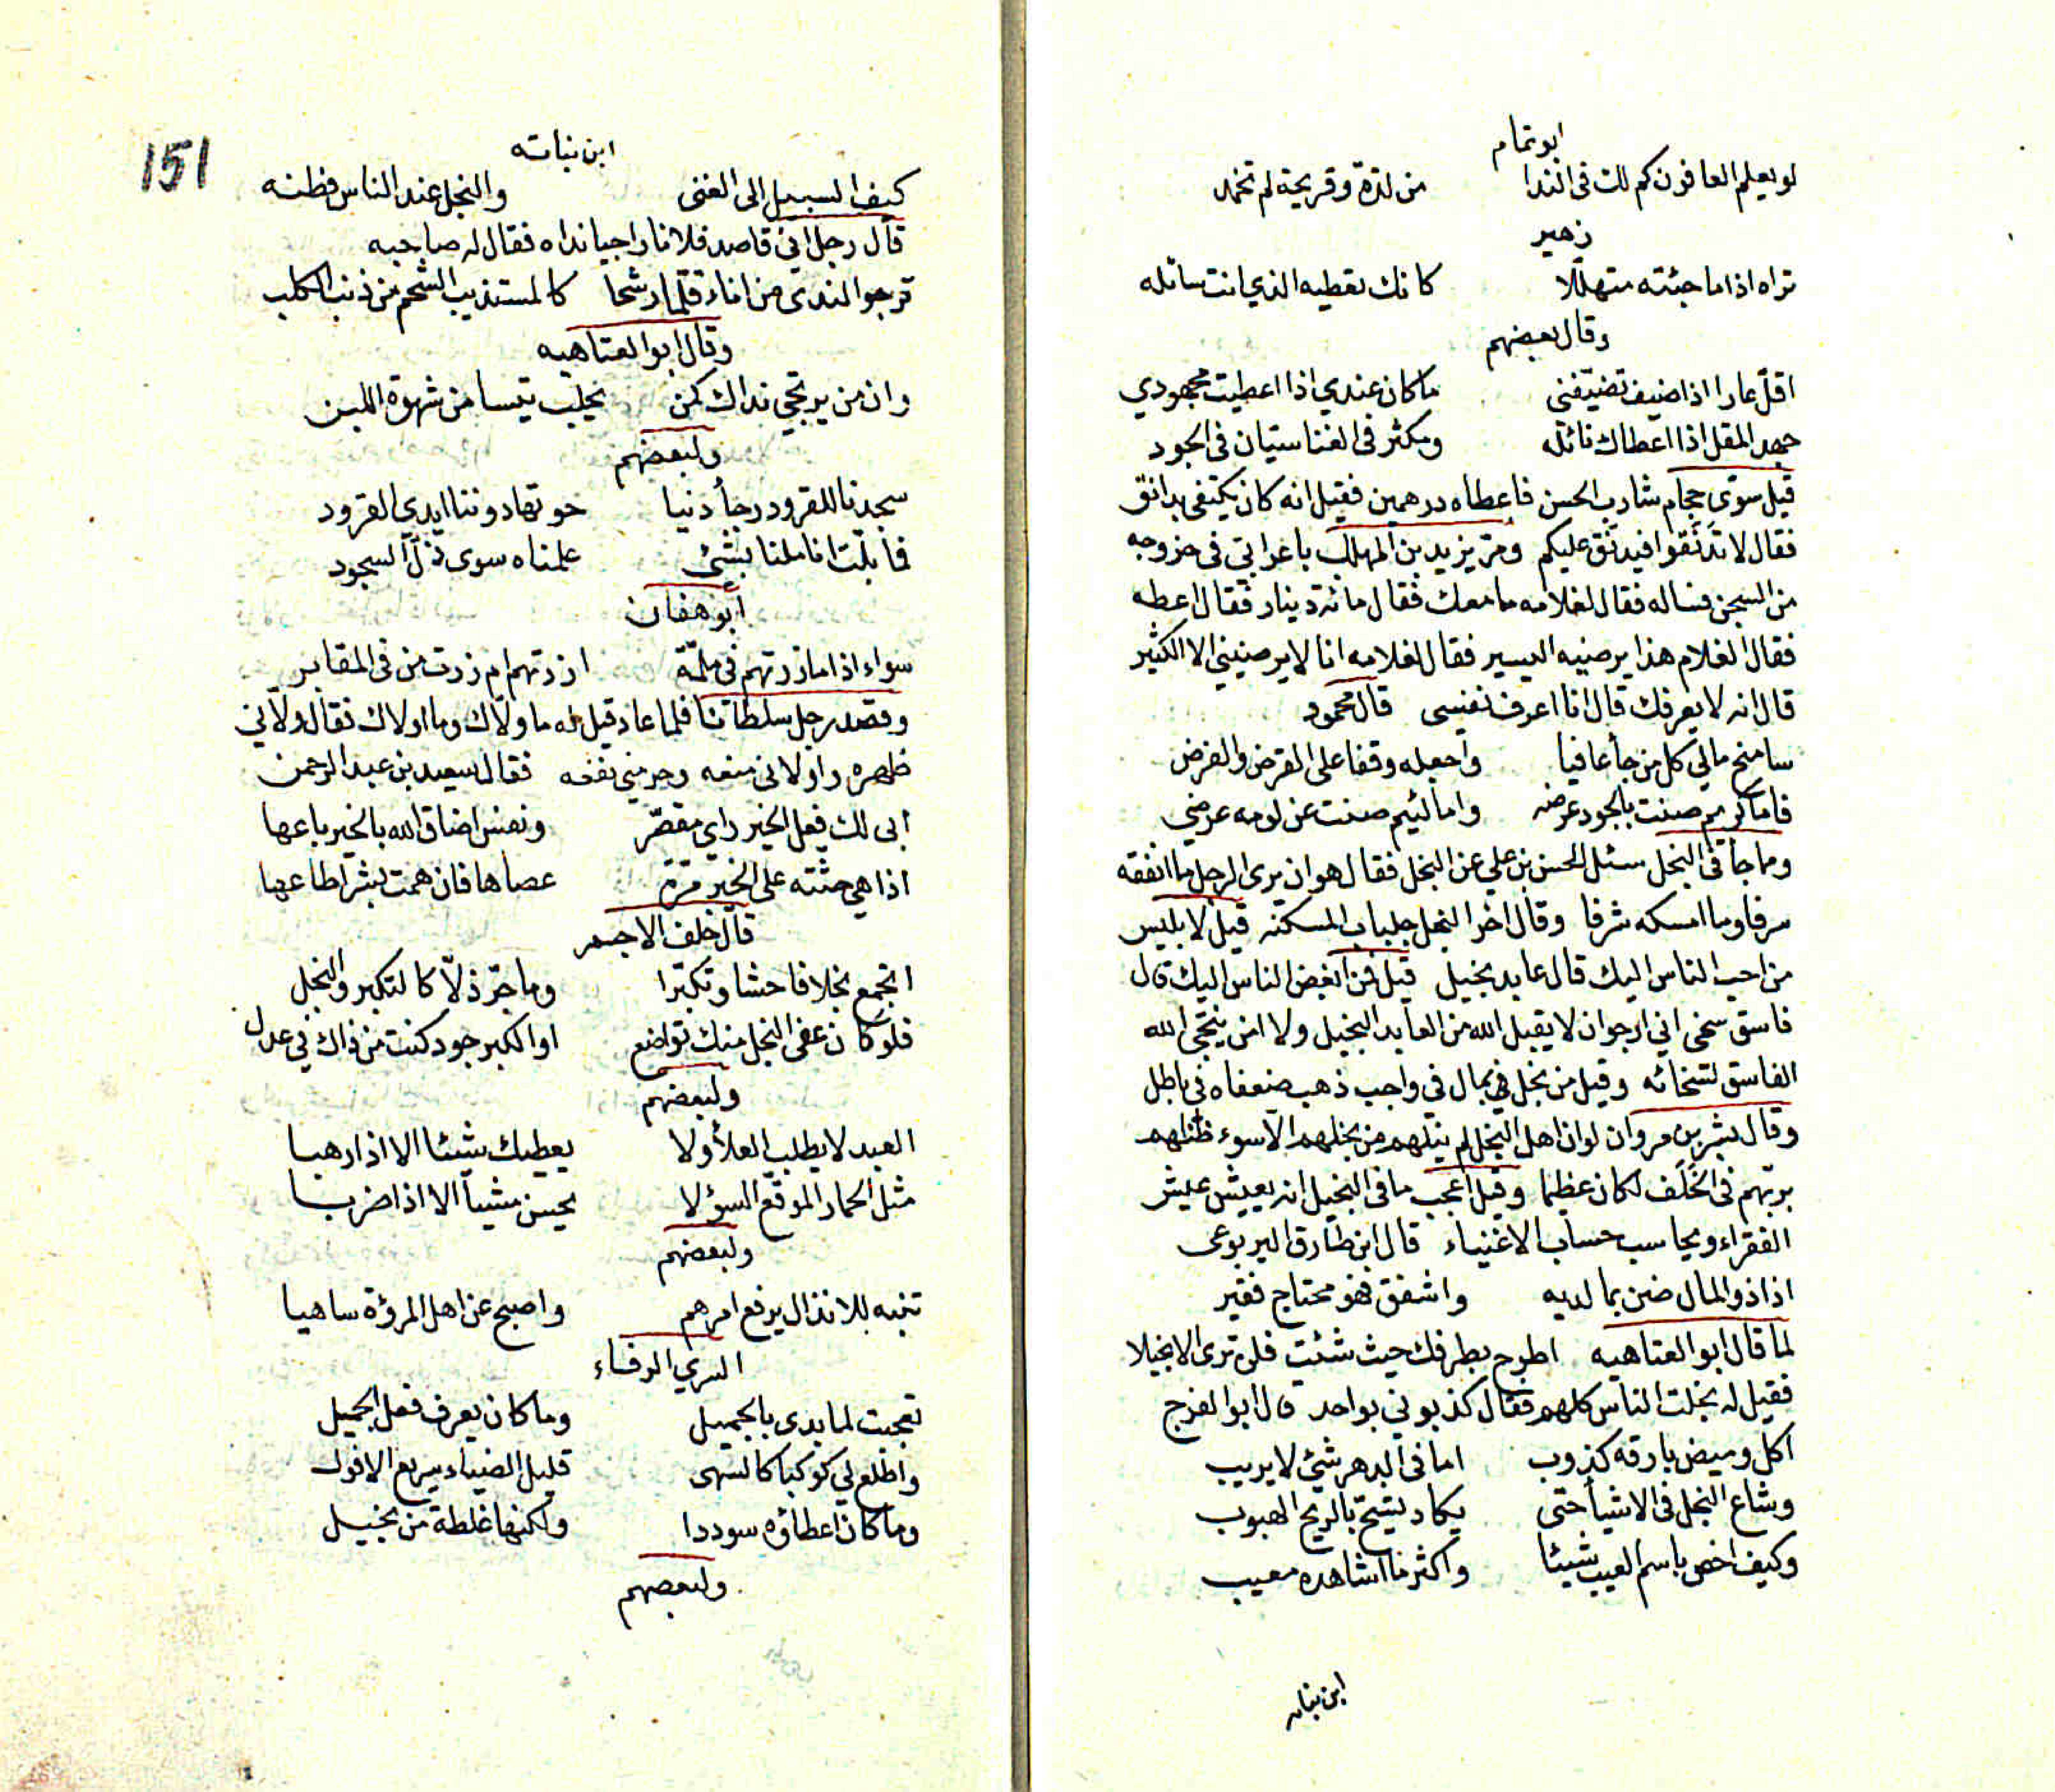 ابو تمام
لو يعلم العافون كم لك فى الندا من لذة وقريحة لم تخمد
زهير
تراه اذا ما جئته متهللا كانك تعطيه الذي انت سائله
وقال بعضهم
اقل عارا اذا ضيف تضيفنى ما كان عندي اذا اعطيت مجهودي
جهد المقل اذا اعطاك نائله ومكثر فى الغنا سيان فى الجود
قيل سوى حجام شارب الحسن فاعطاه درهمين فقيل انه كان يكتفى بدانق
فقال لا تدنقوا فيدنق عليكم ومر يزيد بن المهلب باعرابى فى خروجه
من السجن فساله فقال لغلامه ما معك فقال مائة دينار فقال اعطه
فقال الغلام هذا يرضيه اليسير فقال لغلامه انا لا يرضينى الا الكثير
قال انه لا يعرفك قال انا اعرف نفسى قال محمود
سامنح مالي كل من جأ عافيا واجعله وقفا على القرض والفرض
فاما كريم صنت بالجود عرضه واما لئيم صنت عن لومه عرضي
وما جأ فى البخل سئل الحسن بن علي عن البخل فقال هو ان يرى الرجل ما انفقه
سرفا وما امسكه شرفا وقال اخر البخل جلباب المسكنه قيل لابليس
من احب الناس اليك قال عابد بخيل قيل فمن ابغض الناس اليك قال
فاسق سخى اني ارجوا ن لا يقبل الله من العابد البخيل ولا امن ينجى الله
الفاسق لسخائه وقيل من بخل فى بمال فى واجب ذهب ضعفاه فى باطل
وقال بشر بن مروان لو ان اهل البخل لم ينلهم من بخلهم الا سوء ظنهم
بربهم فى الخلف لكان عظيما وقيل اعجب ما فى البخيل انه يعيش عيش
الفقراء ويحاسب حساب الاغنياء قال ابن طارق اليربوعى
اذا ذو المال ضن بما لديه واشفق فهو محتاج فقير
لما قال ابو العتاهيه اطرح بطرفك حيث شئت فلن ترى الا بخيلا
فقيل له بخلت الناس كلهم فقال كذبونى بواحد قال ابو الفرج
اكل وميض بارقه كذوب اما فى الدهر شئ لا يريب
وشاع البخل فى الاشيأ حتى يكاد يشح بالريح الهبوب
وكيف اخص باسم العيب شيئا واكثر ما اشاهده معيب
ابن نباته
151
ابن نباته
كيف السبيل الى الغنى والبخل عند الناس فطنه
قال رجل اني قاصد فلانا راجيا نداه فقال له صاحبه
ترجو الندى من اناء قلما رشحا كالمستذيب الشحم من ذنب الكلب
وقال ابو العتاهيه
وان من يرتجي نداك كمن يحلب تيسا من شهوة اللبن
ولبعضهم
سجدنا للقرود رجأ دنيا حوتها دوننا ايدى القرود
فما بلت اناملنا بشئ علمناه سوى ذل السجود
ابو هفان
سواء اذا ما زرتهم فى ملمة ازرتهم ام زرت من فى المقابر
وقصد رجل سلطانا فلما عاد قيل له ما ولاك وما اولاك فقال ولاني
ظهره واولانى منعه وحرمني نفعه فقال سعيد بن عبد الرحمن
ابى لك فعل الخير راي مقصر ونفس اضاق الله بالخير باعها
اذا هي حثته على الخير مرة عصاها فان همت بشر اطاعها
قال خلف الاحمر
اتجمع بخلا فاحشا وتكبرا وما جر ذلا كالتكبر والبخل
فلو كان عفى البخل منك تواضع او الكبر جود كنت من ذاك في عدل
ولبعضهم
العبد لا يطلب العلأ ولا يعطيك شيئا الا اذا رهبا
مثل الحمار الموقع السؤلا يحسن مشيا الا اذا ضربا
ولبعضهم
تنبه للانذال يرفع امرهم واصبح عن اهل المرؤة ساهيا
السري الرفاء
تعجبت لما بدى بالجميل وما كان يعرف فعل الجميل
واطلع لي كوكبا كالسهى قليل الضياء سريع الافول
وما كان اعطاؤه سوددا ولكنها غلطة من بخيل
ولبعضهم